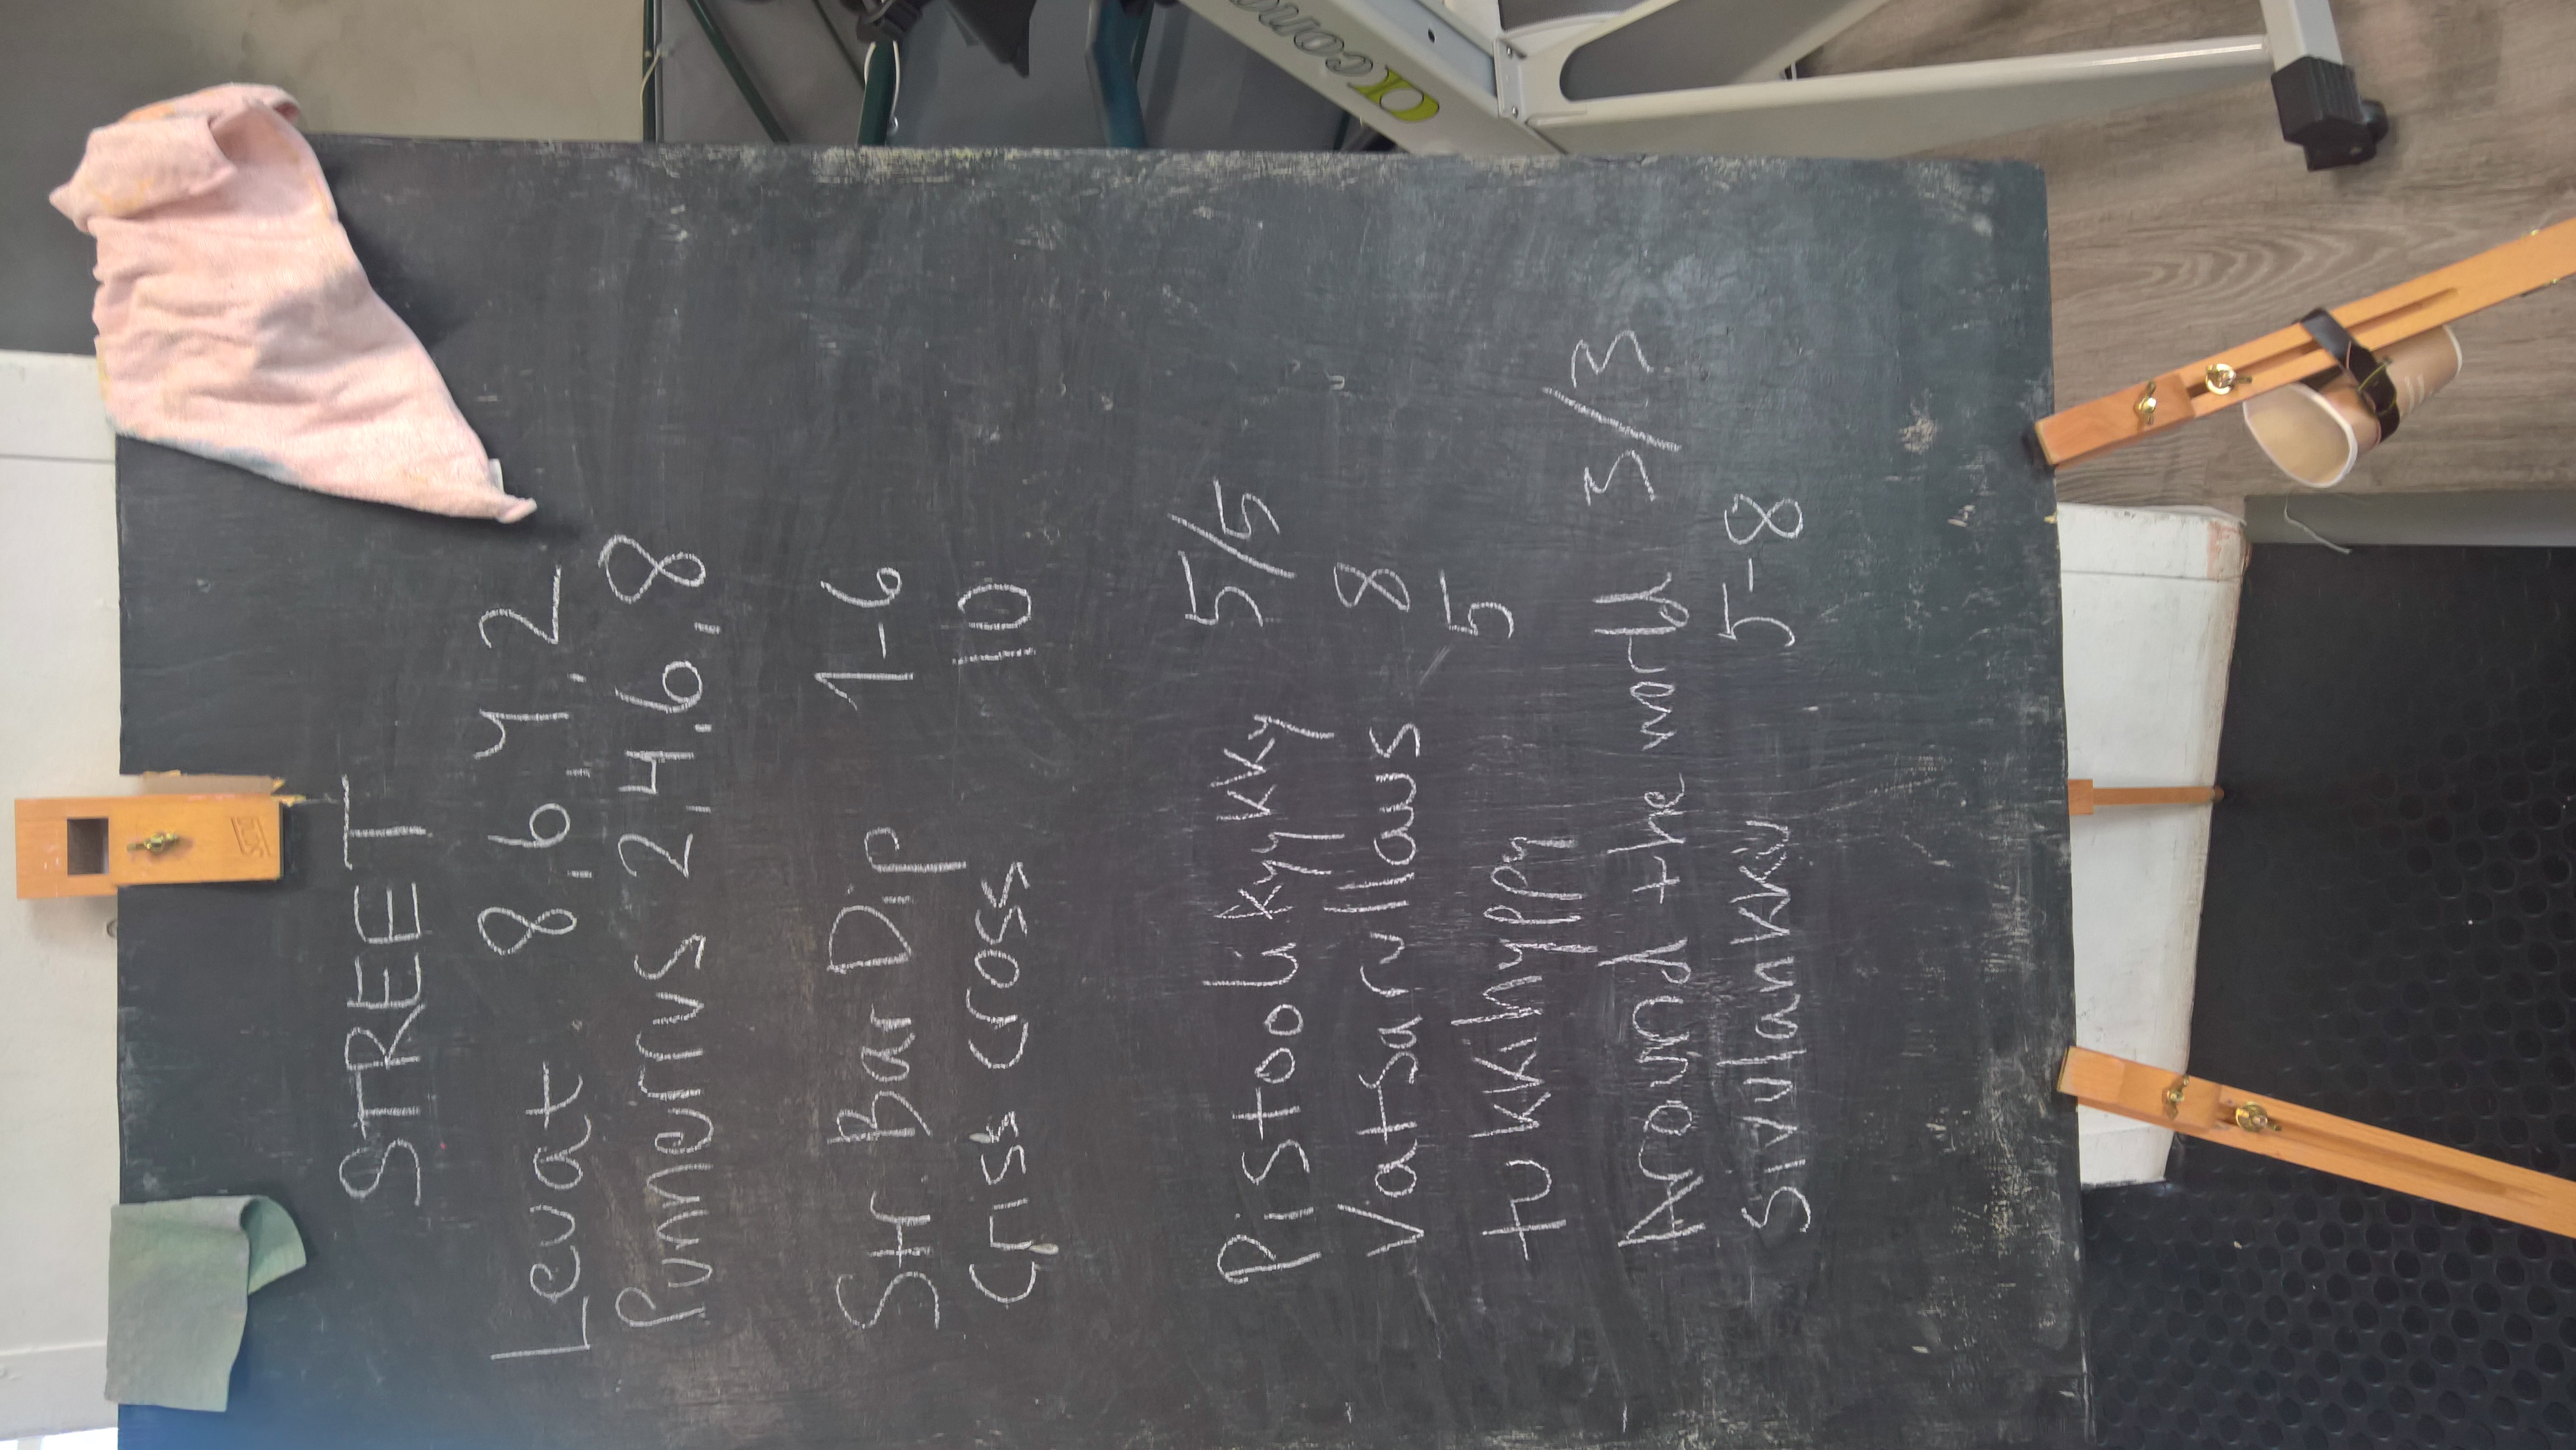 STREET
Levat. 8, 6, 4, 2
Punnerrus 2, 4, 6, 8
Str. Bar Dip 1-6
Criss cross 10
Pistooli kyykky 5/5
Vatsarullaus 8
tukkinyppy 5
Around the world 3/3
Sivulankku 5-8
Concept